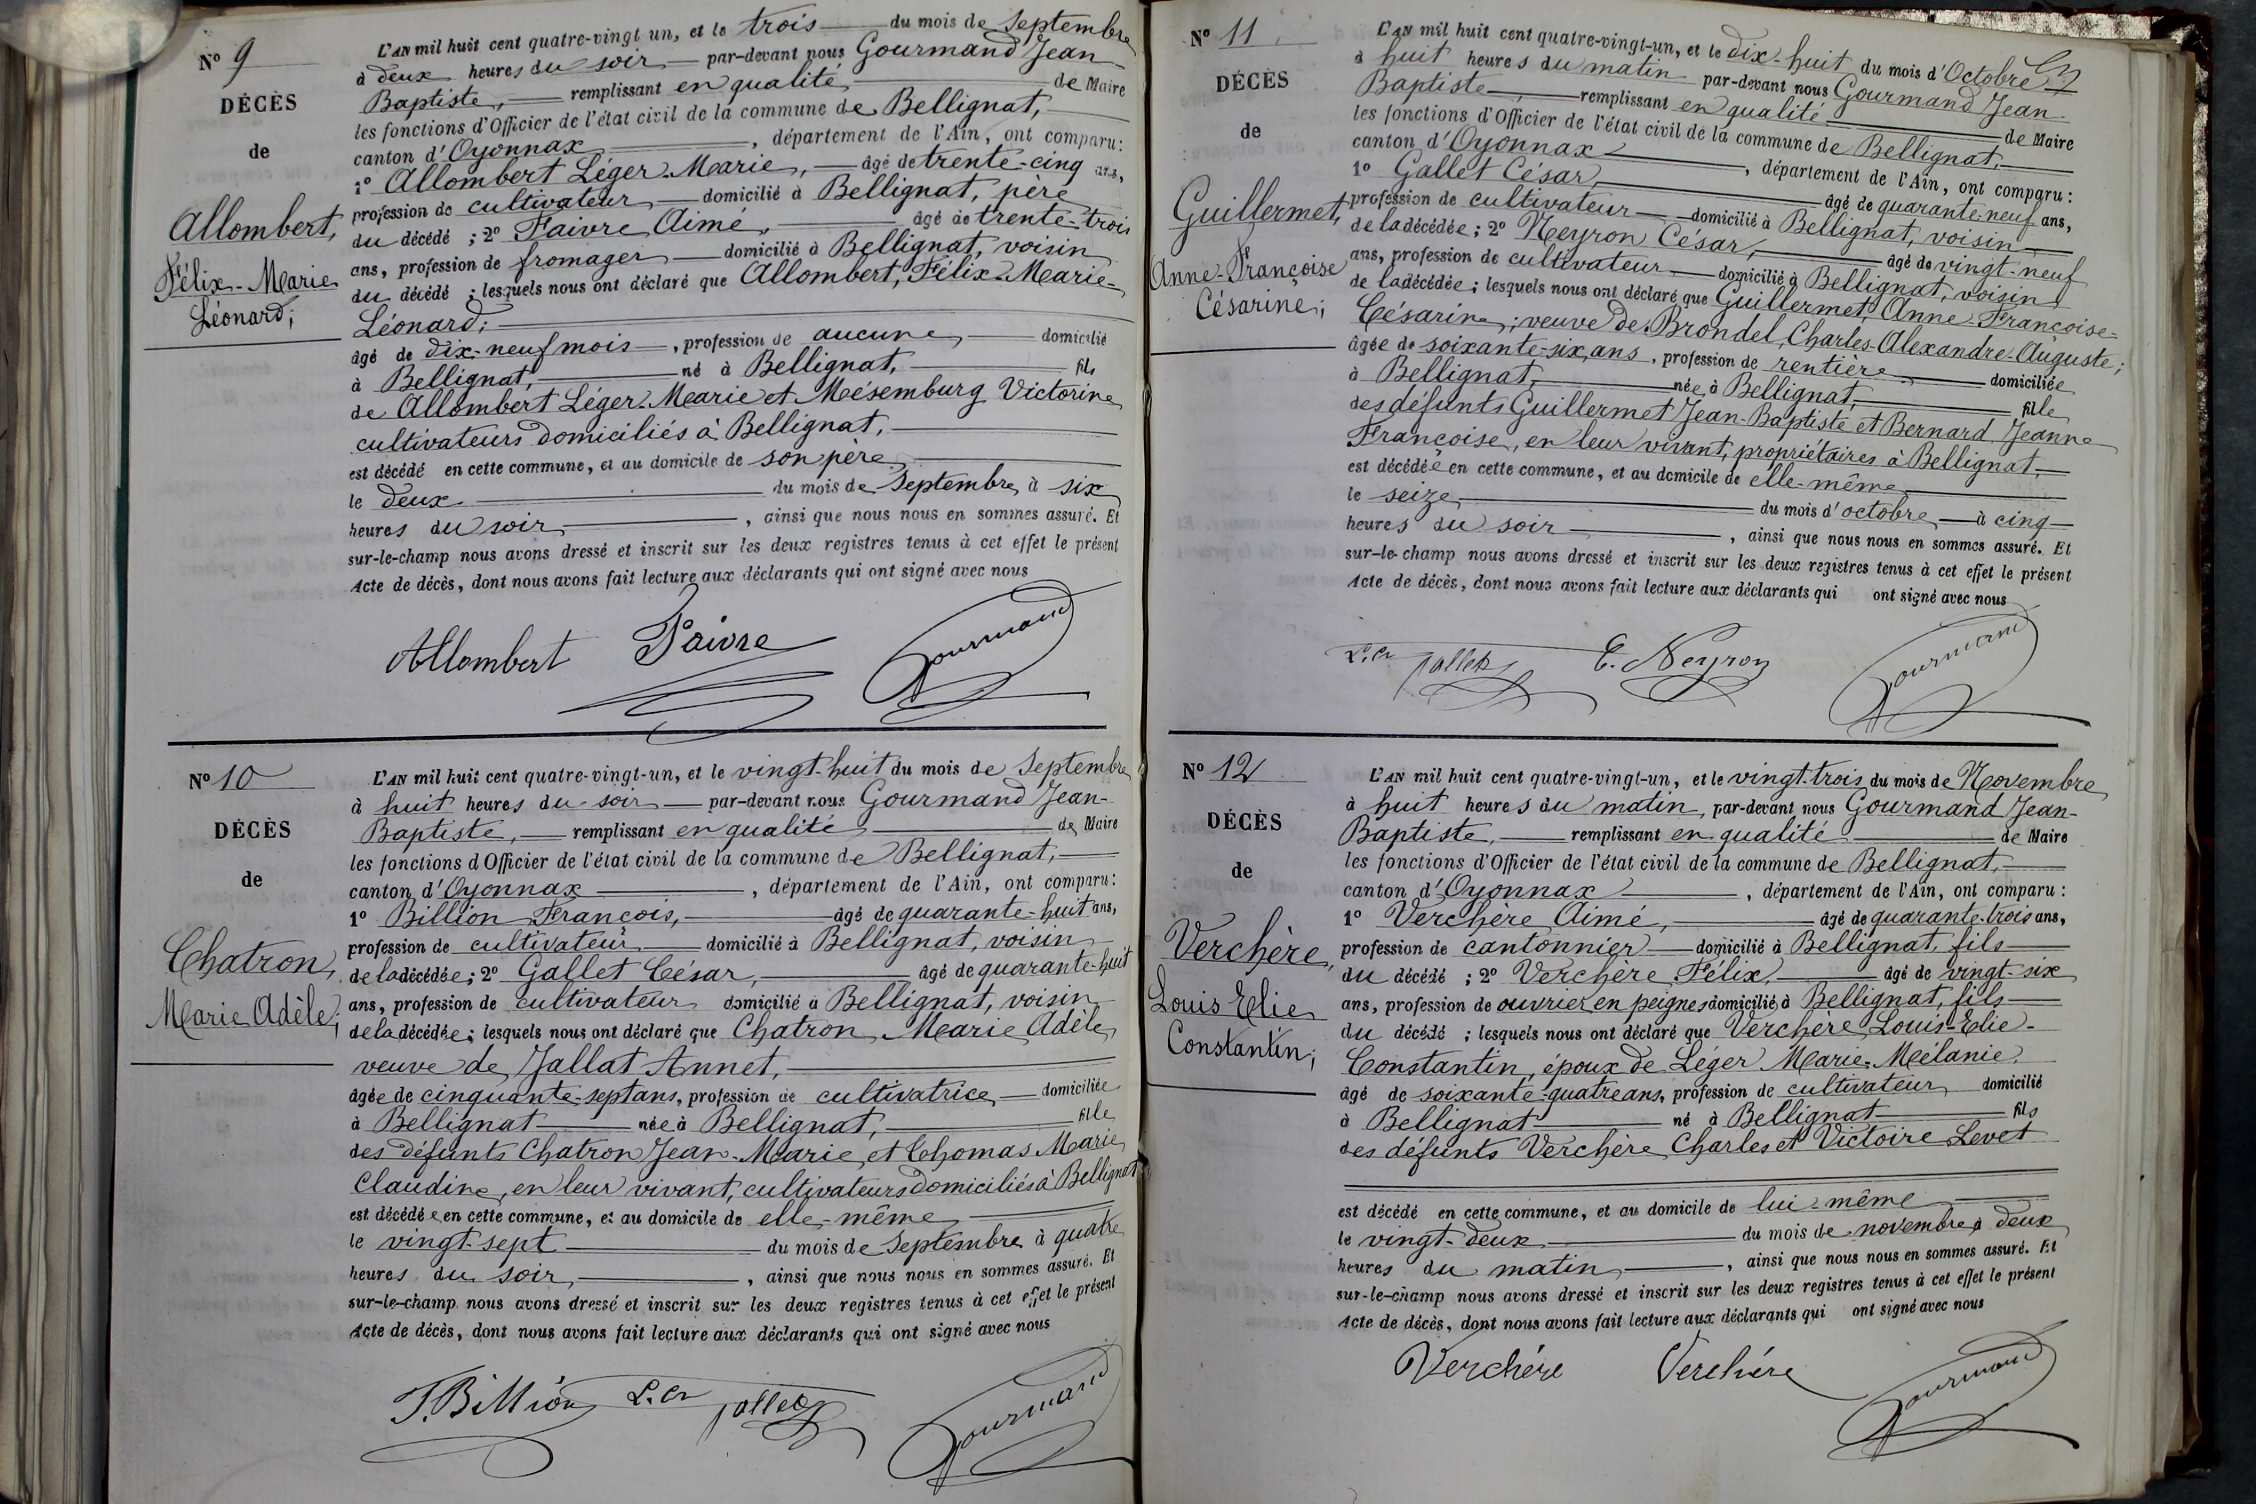 N° 9
DÉCÈS
de
Allombert,
Félix-Marie
Léonard;
L'AN mil huit cent quatre-vingt un, et le trois du mois de Septembre
à deux heures du soir par-devant nous Gourmand Jean-
Baptiste, remplissant en qualité de Maire
les fonctions d'Officier de l'état civil de la commune de Bellignat,
canton d'Oyonnax, département de l'Ain, ont comparu:
1° Allombert Léger-Marie, âgé de trente-cinq ans,
profession de cultivateur domicilié à Bellignat, père
du décédé ; 2° Faivre Aimé, âgé de trente-trois
ans, profession de fromager domicilié à Bellignat, voisin
du décédé ; lesquels nous ont déclaré que Allombert, Félix-Marie-
Léonard;
âgé de dix-neuf mois, profession de aucune domicilié
à Bellignat, né à Bellignat, fils
de Allombert Léger-Marie et Mésemburg Victorine
cultivateurs domiciliés à Bellignat,
est décédé en cette commune, et au domicile de son père
le deux du mois de Septembre à six
heures du soir, ainsi que nous nous en sommes assuré. Et
sur-le-champ nous avons dressé et inscrit sur les deux registres tenus à cet effet le présent
Acte de décès, dont nous avons fait lecture aux déclarants qui ont signé avec nous
Allombert Faivre Gourmand
N° 10
DÉCÈS
de
Chatron,
Marie Adèle;
L'AN mil huit cent quatre-vingt-un, et le vingt-huit du mois de Septembre
à huit heures du soir par-devant nous Gourmand Jean-
Baptiste, remplissant en qualité de Maire
les fonctions d'Officier de l'état civil de la commune de Bellignat,
canton d'Oyonnax, département de l'Ain, ont comparu:
1° Billion François, âgé de quarante-huit ans,
profession de cultivateur domicilié à Bellignat, voisin
de la décédée; 2° Gallet César, âgé de quarante-huit
ans, profession de cultivateur domicilié à Bellignat, voisin
de la décédée; lesquels nous ont déclaré que Chatron Marie Adèle,
veuve de Jallat Annet,
âgée de cinquante-sept ans, profession de cultivatrice domiciliée
à Bellignat née à Bellignat, fille
des défunts Chatron Jean-Marie et Thomas Marie
Claudine, en leur vivant, cultivateurs domiciliés à Bellignat
est décédée en cette commune, et au domicile de elle-même
le vingt-sept du mois de Septembre à quatre
heures du soir, ainsi que nous nous en sommes assuré. Et
sur-le-champ nous avons dressé et inscrit sur les deux registres tenus à cet effet le présent
Acte de décès, dont nous avons fait lecture aux déclarants qui ont signé avec nous
F. Billion Gallet Gourmand
N° 11
DÉCÈS
de
Guillermet,
Anne-Françoise
Césarine;
L'AN mil huit cent quatre-vingt-un, et le dix-huit du mois d'Octobre
à huit heures du matin par-devant nous Gourmand Jean-
Baptiste, remplissant en qualité de Maire
les fonctions d'Officier de l'état civil de la commune de Bellignat,
canton d'Oyonnax, département de l'Ain, ont comparu:
1° Gallet César, âgé de quarante-neuf ans,
profession de cultivateur domicilié à Bellignat, voisin
de la décédée; 2° Neyron César, âgé de vingt-neuf
ans, profession de cultivateur domicilié à Bellignat, voisin
de la décédée; lesquels nous ont déclaré que Guillermet, Anne-Françoise-
Césarine; veuve de Brondel, Charles-Alexandre-Auguste;
âgée de soixante-six ans, profession de rentière domiciliée
à Bellignat, née à Bellignat, fille
des défunts Guillermet Jean-Baptiste et Bernard Jeanne
Françoise, en leur vivant, propriétaires à Bellignat
est décédée en cette commune, et au domicile de elle-même
le seize du mois d'octobre à cinq
heures du soir, ainsi que nous nous en sommes assuré. Et
sur-le-champ nous avons dressé et inscrit sur les deux registres tenus à cet effet le présent
Acte de décès, dont nous avons fait lecture aux déclarants qui ont signé avec nous
Gallet C. Neyron Gourmand
N° 12
DÉCÈS
de
Verchère,
Louis Elie
Constantin;
L'AN mil huit cent quatre-vingt-un, et le vingt-trois du mois de Novembre
à huit heures du matin, par-devant nous Gourmand Jean-
Baptiste, remplissant en qualité de Maire
les fonctions d'Officier de l'état civil de la commune de Bellignat,
canton d'Oyonnax, département de l'Ain, ont comparu:
1° Verchère Aimé, âgé de quarante-trois ans,
profession de cantonnier domicilié à Bellignat, fils
du décédé ; 2° Verchère Félix, âgé de vingt-six
ans, profession de ouvrier en peignes domicilié à Bellignat, fils
du décédé ; lesquels nous ont déclaré que Verchère Louis-Elie-
Constantin, époux de Léger Marie-Mélanie,
âgé de soixante-quatre ans, profession de cultivateur domicilié
à Bellignat né à Bellignat fils
des défunts Verchère Charles et Victoire Levet
est décédé en cette commune, et au domicile de lui-même
le vingt-deux du mois de novembre à deux
heures du matin, ainsi que nous nous en sommes assuré. Et
sur-le-champ nous avons dressé et inscrit sur les deux registres tenus à cet effet le présent
Acte de décès, dont nous avons fait lecture aux déclarants qui ont signé avec nous
Verchére Verchére Gourmand